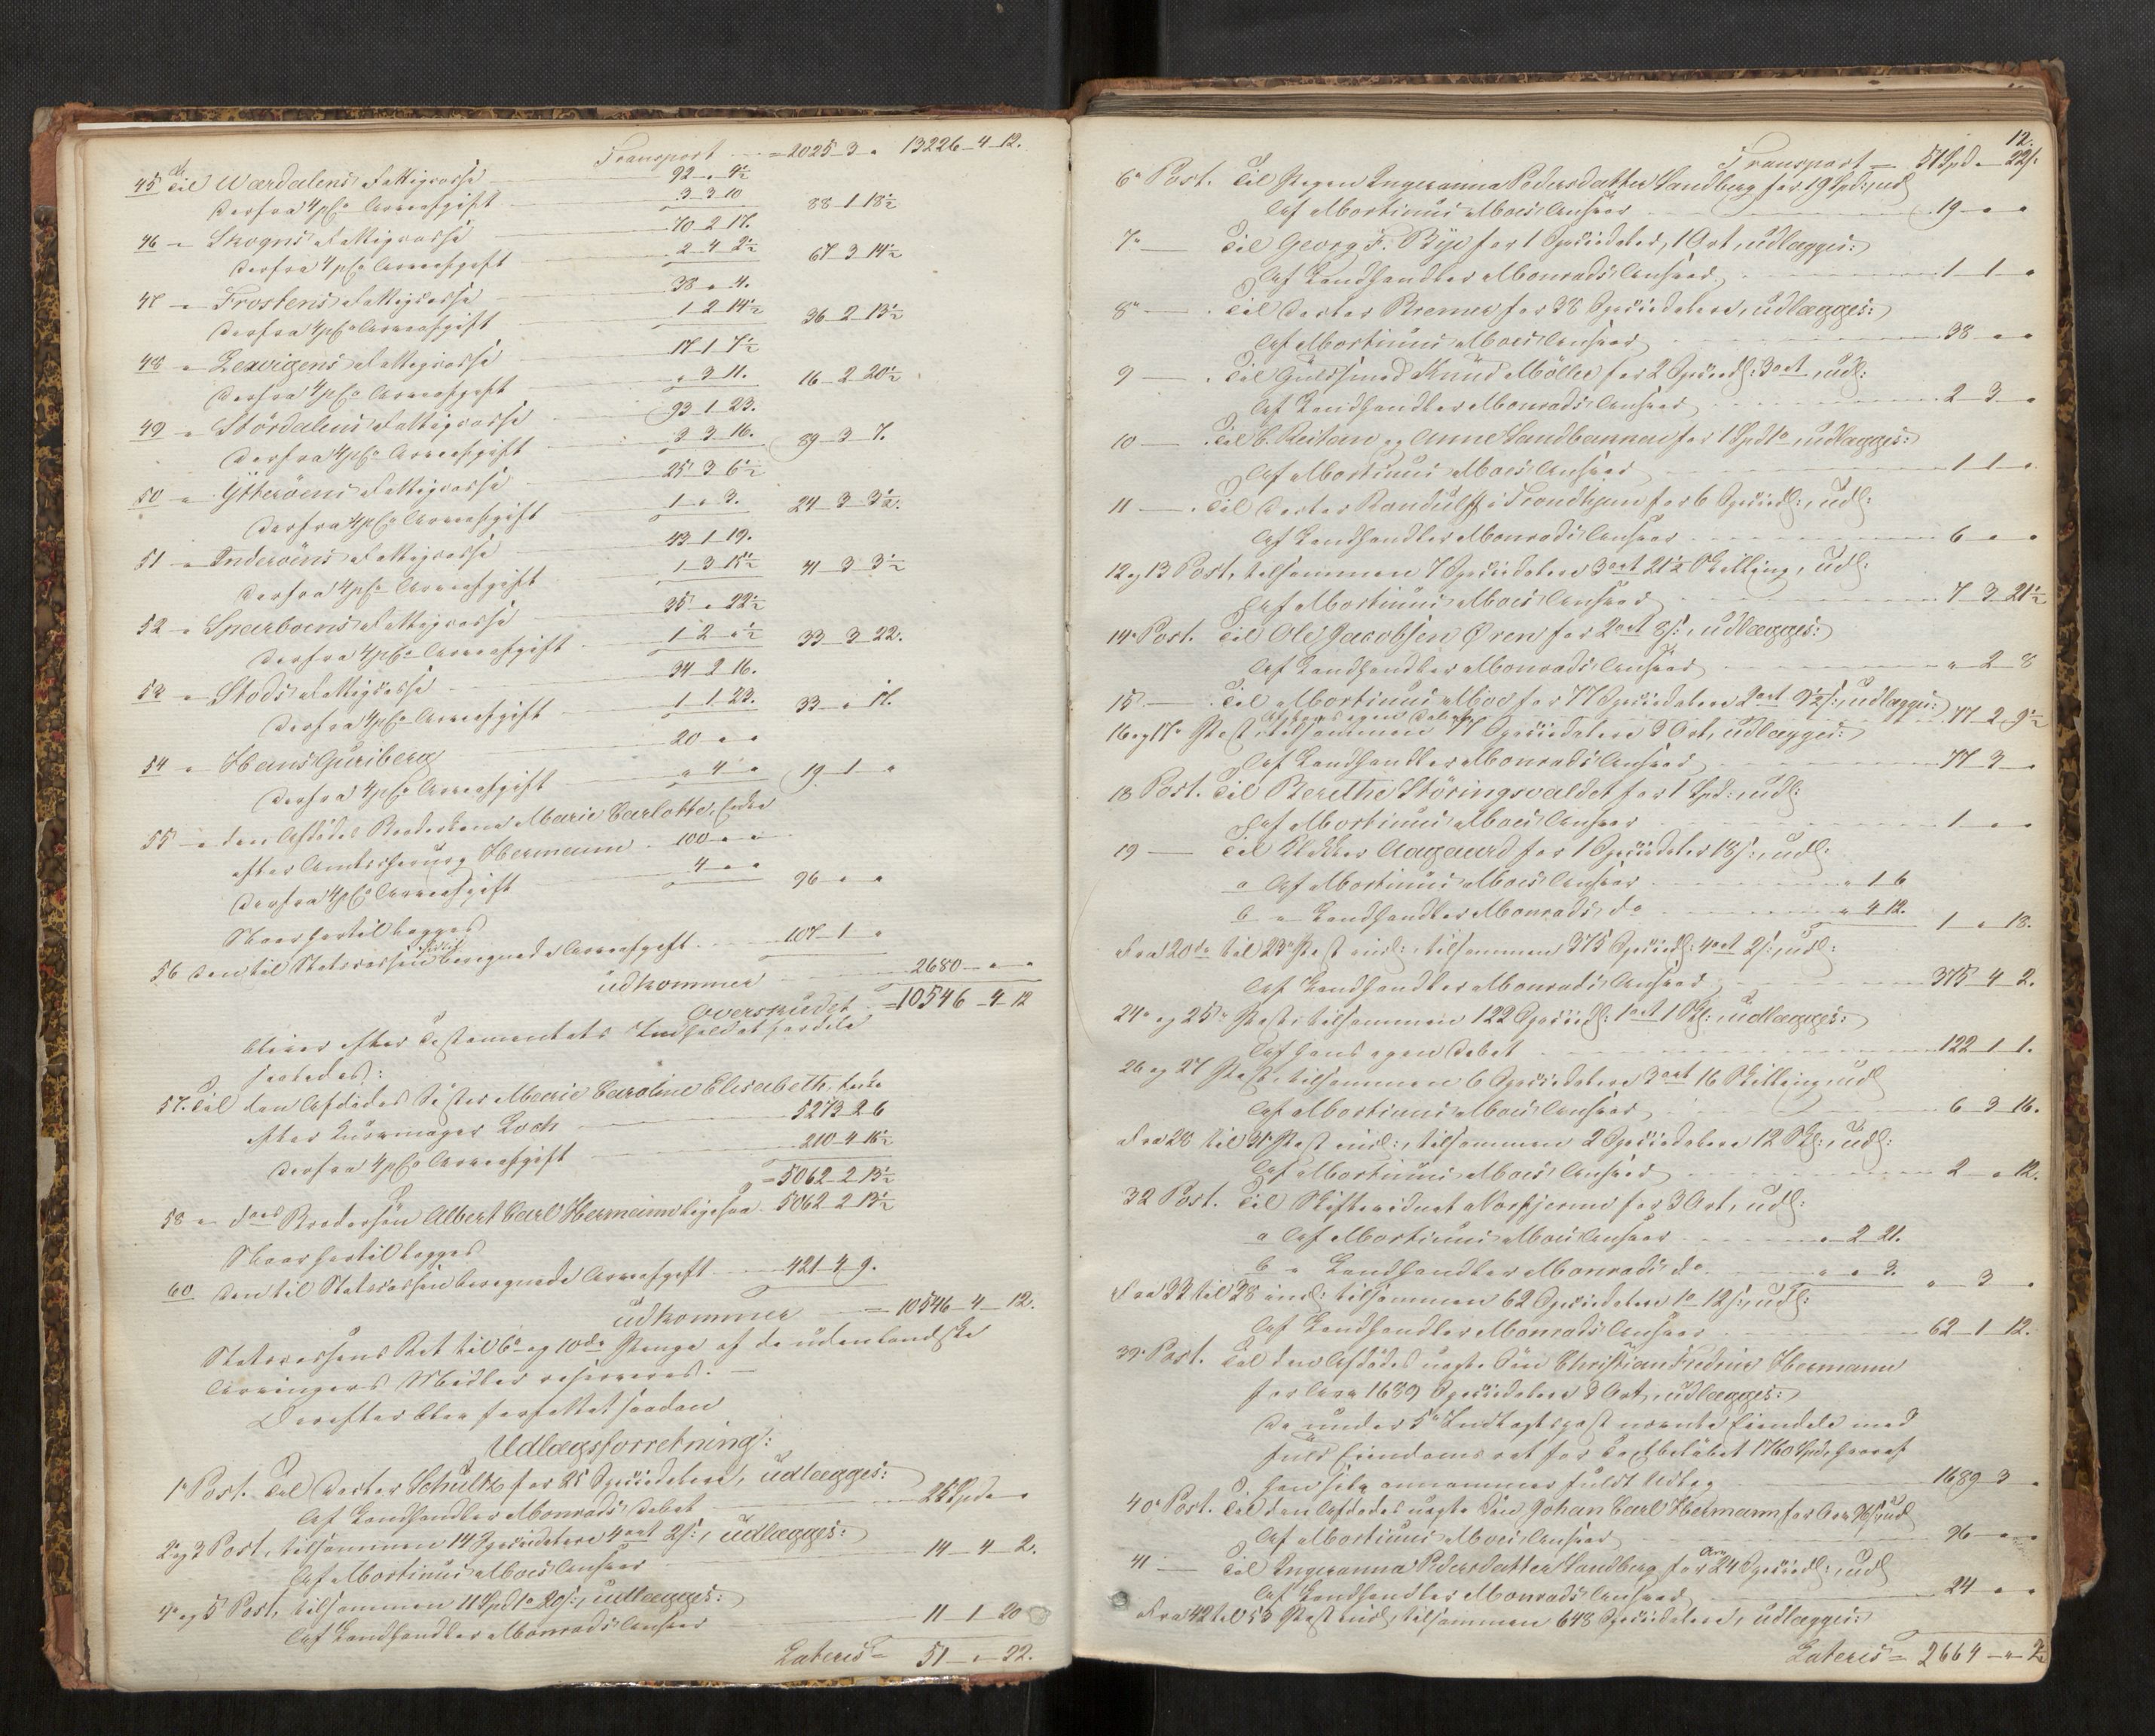 Transport = 2025_3 " 13226_4_12.
45 de Til Værdalens Fattigcasse 92 " 4½
Derfra 4 pCo Arveafgift 3 3 10 88 1 18½
46 " Skogns Fattigcasse 70 2 17.
Derfra 4 pCo Arveafgift 2 4 2½ 67 3 14½
47 " Frostens Fattigcasse 38 " 4.
Derfra 4 pCo Arveafgift 1 2 14½ 36 2 13½
48 " Lexvigens Fattigcasse 17 1 7½
Derfra 4 pCo Arveafgift " 3 11. 16 2 20½
49 " Stördalens Fattigcasse 93 1 23.
Derfra 4 pCo Arveafgift 3 3 16. 89 3 7.
50 " Ytteröens Fattigcasse 25 3 6½
Derfra 4 pCo Arveafgift 1 " 3. 24 3 3½.
51 " Inderöens Fattigcasse 43 1 19.
Derfra 4 pCo Arveafgift 1 3 15½ 41 3 3½
52 " Sparboens Fattigcasse 35 " 22½
Derfra 4 pCo Arveafgift 1 2 "½ 33 3 22.
53 " Stods Fattigcasse 34 2 16.
Derfra 4 pCo Arveafgift 1 1 23. 33 " 17.
54 " Hans Guriberg 20 " "
Derfra 4 pCo Arveafgift " 4 " 19 1 "
55 " den Afdödes Broderkone Marie Carlotte, Enke
efter Hermann 100 " "
Derfra 4 pCo Arveafgift 4 " " 96 " "
Naar hertil lægges
56 den til Statscassen beregnede Arveafgift 107 1 "
udkommer 2680 " "
Overskudet = 10546_4_12
bliver efter Testamentets Indhold at fordele
saaledes:
57. Til den Afdödes Söster Marie Caroline Elisabeth, Enke
efter Loch 5273 2 6
Derfra 4 pCo Arveafgift 210 4 16½
= 5062 2 13½
58 " Brodersön Albert Carl Hermann ligesaa 5062 2 13½
Naar hertil lægges
60 den til Statscassen beregnede Arveafgift 421 4 9.
udkommer = 10546_4_12.
Statscassens Ret til 6te og 10de Penge af de udenlandske
Arvingers Midler reserveres. —
Derefter blev forfattet saadan
Udlægsforretning:
1e Post. Til Doctor Schultz for 25 Speciedaler, udlægges:
Af Landhandler Monrads Debet 25 Spd "
2 og 3 Post, tilsammen 14 Speciedaler 4 ort 2 s:, udlægges:
Af Mortinus Moes Ansvar 14_4_2.
4 og 5 Post, tilsammen 11 Spd 1 o 20 s:, udlægges:
Af Landhandler Monrads Ansvar 11_1_20
Lateris = 51_"_22.
12.
Transport = 51 Spd " 22 s.
6e Post. Til Pigen Ingeranna Pedersdatter Sandberg for 19 Spd:, udl
Af Mortinus Moes Ansvar 19 " "
7e — Til Georg F. Bye for 1 Speciedaler, 1 Ort, udlægges:
Af Landhandler Monrads Ansvar 1_1_"
8e — . Til Doctor Bremer for 38 Speciedaler, udlægges:
Af Mortinus Moes Ansvar 38 " "
9 — . Til Guldsmed Knud Möller for 2 Speciedl: 3 ort, udl:
Af Landhandler Monrads Ansvar 2_3_"
10 — . Til C. Reitan og Anne Sandbakken for 1 Spd 1 o, udlægges:
Af Mortinus Moes Ansvar 1_1_"
11 — . Til Doctor Randulff i Trondhjem for 6 Speciedl:, udl:
Af Landhandler Monrads Ansvar 6 " "
12 og 13 Post, tilsammen 7 Speciedaler 3 ort 21½ Skilling, udl:
Af Mortinus Moes Ansvar 7_3_21½
14e Post. Til Ole Jacobsen Øren for 2 ort 8 s:, udlægges:
Af Landhandler Monrads Ansvar "_2_8
15 — . Til Mortinus Moe for 77 Speciedaler 2 ort 9½ s:, udlægges:
Af hans egen Debet 77_2_9½
16 og 17e Post, tilsammen 77 Speciedaler 3 Ort, udlægges:
Af Landhandler Monrads Ansvar 77_3_"
18 Post. Til Berethe Störingsvaldet for 1 Spd:, udl:
Af Mortinus Moes Ansvar 1 " "
19 — Til Klokker Aagaard for 1 Speciedaler 18 s:, udl:
a Af Mortinus Moes Ansvar " 1 6
b " Landhandler Monrads, do " 4 12. 1_"_18.
Fra 20de til 23e Post incl:, tilsammen 375 Speciedl: 4 ort 2 s:, udl:
Af Landhandler Monrads Ansvar 375_4_2.
24e og 25e Post, tilsammen 122 Speciedl: 1 ort 1 Sk:, udlægges:
Af hans egen Debet 122_1_1.
26 og 27 Post, tilsammen 6 Speciedaler 3 ort 16 Skilling, udl
Af Mortinus Moes Ansvar 6_3_16.
Fra 28 til 31e Post incl:, tilsammen 2 Speciedaler 12 Sk:, udl:
Af Mortinus Moes Ansvar 2_"_12.
32 Post. Til Skiftevidnet Norstjerne for 3 Ort, udl:
a Af Mortinus Moes Ansvar " 2 21.
b " Landhandler Monrads do " " 3. "_3_"
Fra 33 til 38 incl: tilsammen 62 Speciedaler 1 o 12 s:, udl:
Af Landhandler Monrads Ansvar 62_1_12.
39e Post. Til den Afdödes uægte Sön Christian Fredrik Hermann
for Arv 1689 Speciedaler 3 Ort, udlægges:
De under 5e Indtægtspost nævnte Eiendele med
fuld Eiendomsret for Taxtbelöbet 1760 Spd, hvoraf
han sitz annammer fuldt Udlæg 1689_3_"
40e Post. Til den Afdödes uægte Sön Johan Carl Hermann for Arv 96 s, udl
Af Mortinus Moes Ansvar 96 " "
41 — Til Ingeranna Pedersdatter Sandberg for Arv 24 Speciedl:, udl
Af Landhandler Monrads Ansvar 24 " "
Fra 42 til 53 Post incl:, tilsammen 648 Speciedaler, udlægges:
Lateris = 2664_"_2